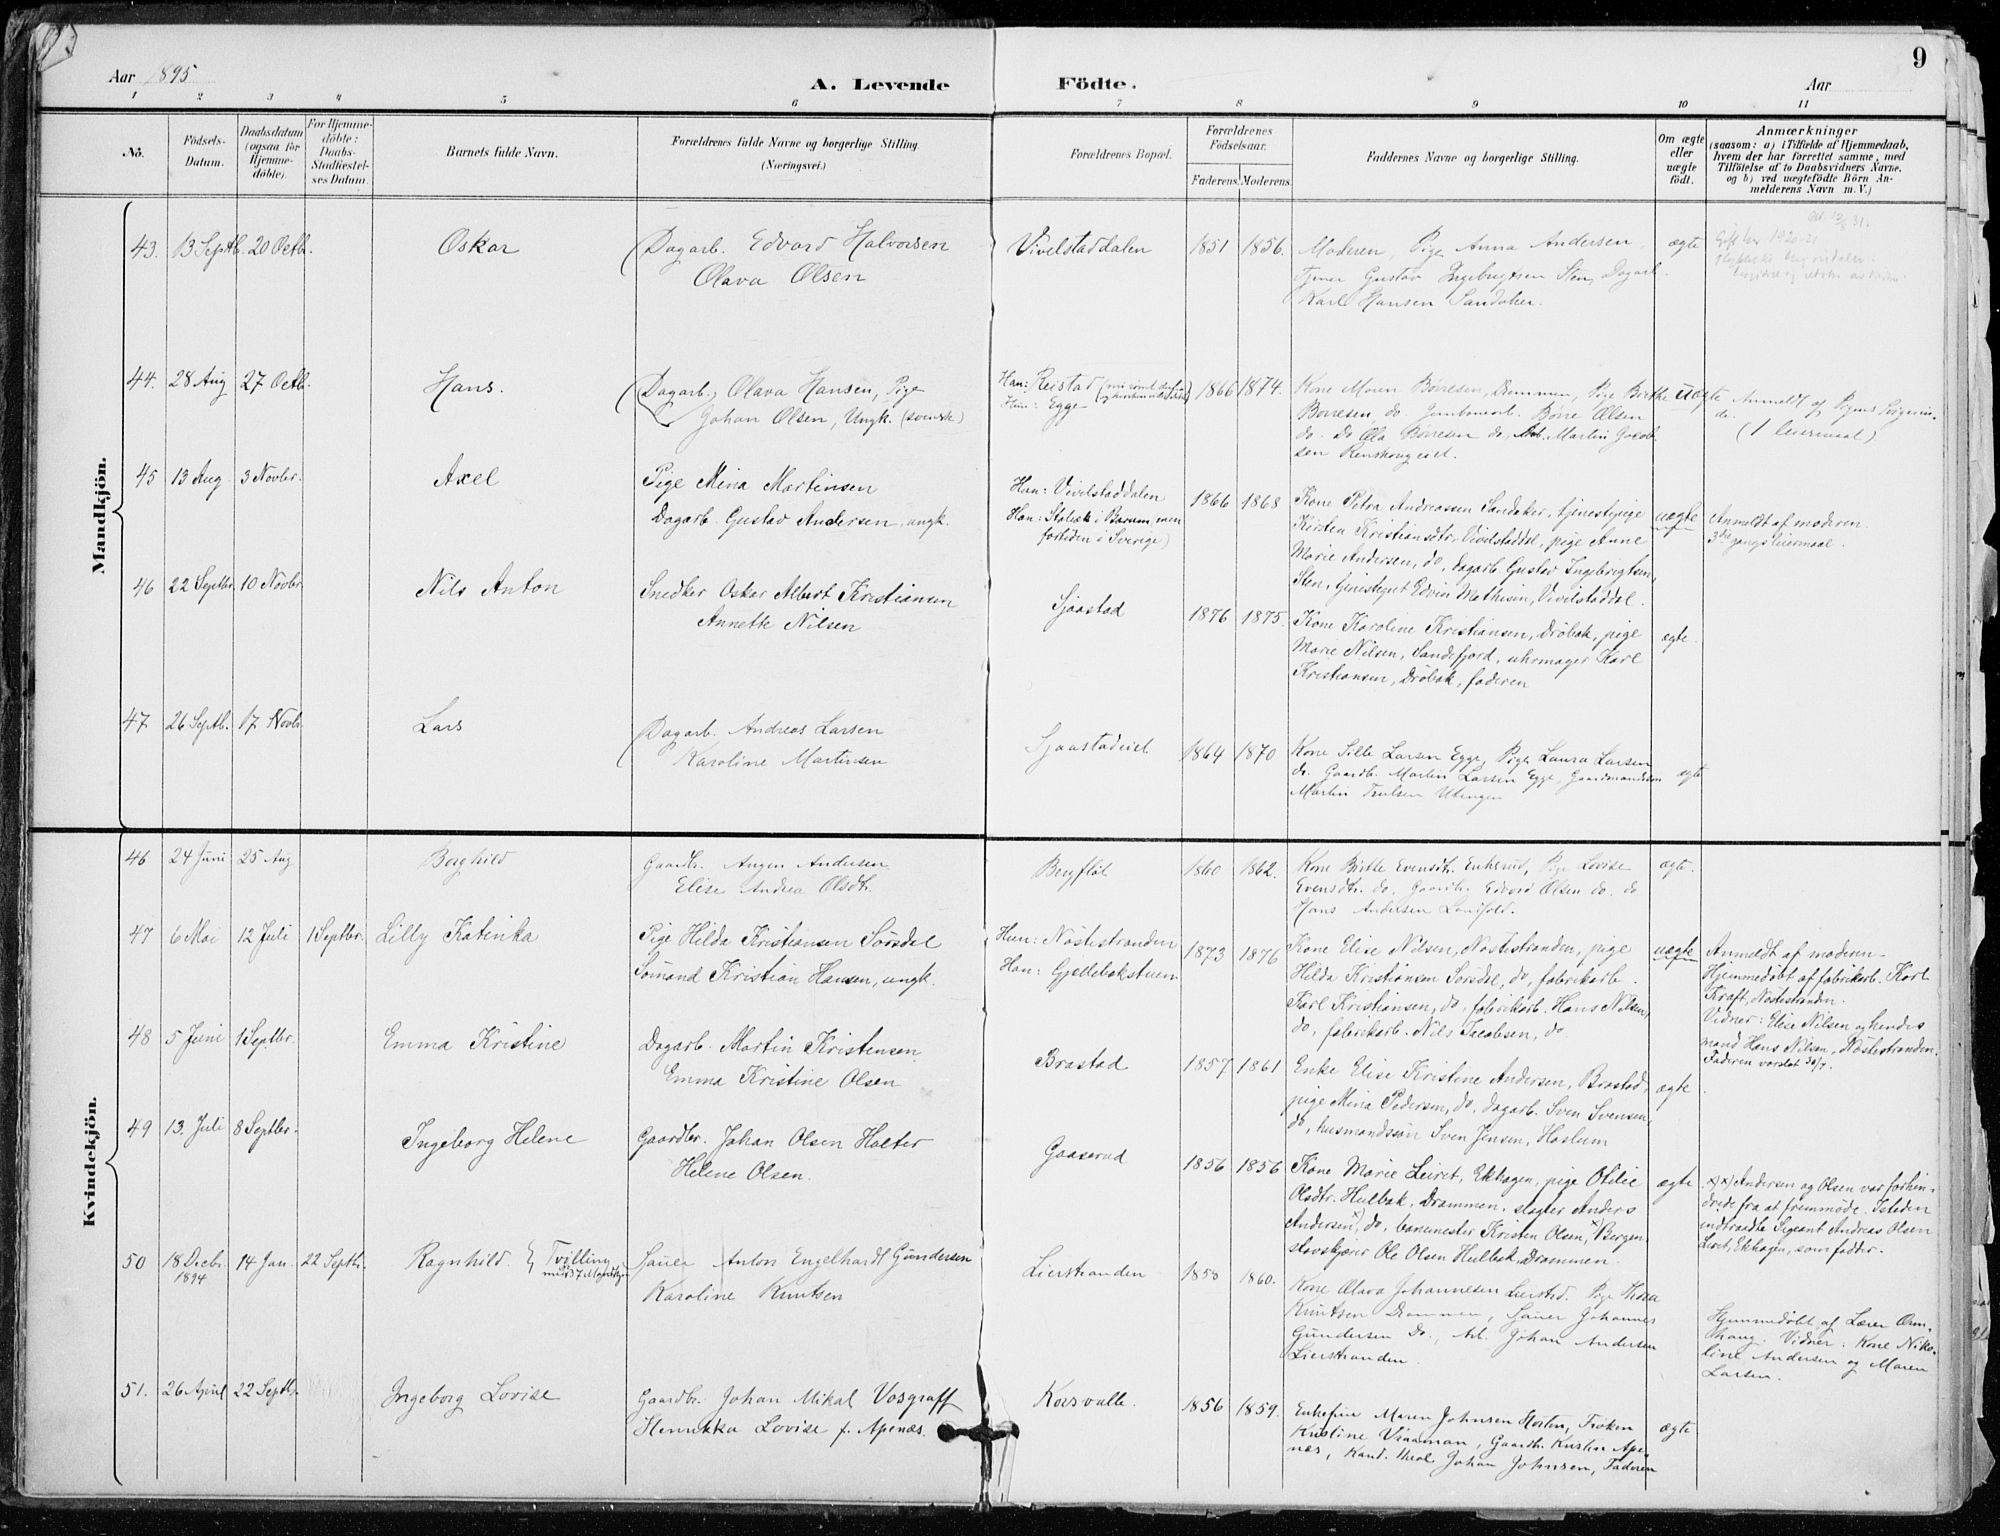 9
Aar 1895
A. Levende
Födte.
Aar
1 2 3 4 5 6 7 8 9 10 11
No.
Födsels-
Datum.
Daabsdatum
(ogsaa for
Hjemme-
döbte).
For Hjemme-
döbte:
Daabs-
Stadfæstel-
ses Datum.
Barnets fulde Navn.
Forældrenes fulde Navne og borgerlige Stilling.
(Næringsvei.)
Forældrenes Bopæl.
Forældrenes
Födselsaar.
Faderens. Moderens.
Faddernes Navne og borgerlige Stilling.
Om ægte
eller
uægte
födt.
Anmærkninger
(saasom: a) i Tilfælde af Hjemmedaab,
hvem der har forrettet samme, med
Tilföielse af to Daabsvidners Navne.
og b) ved uægtefödte Börn An-
melderens Navn m. V.)
Mandkjön.
43. 13 Septb. 20 Octb.
Oskar
Dagarb. Edvard Halvorsen
Olava Olsen
Vivelstaddalen
1851 1856.
Moderen, Pige Anna Andersen,
Tjener Gustav Ingebrigtsen Sten, Dagarb.
Karl Hansen Sandaker.
ægte
44. 28 Aug 27 Octb.
Hans.
Dagarb. Olava Hansen, Pige
Johan Olsen, Ungk. (svensk)
Han: Reistad
Hun: Egge
1866 1874.
Kone Maren Börresen, Drammen, Pige Birthe
Börresen do. Jernbanearb. Börre Olsen
do. Do Ola Börresen do, Arb. Martin Jacob-
sen
uægte
Anmeldt af Pigens Svigerin-
de.
(1 leiermaal)
45 13 Aug. 3 Novbr.
Axel
Pige Mina Martinsen
Dagarb. Gustav Andersen, ungk.
Hun: Vivelstaddalen
Han: Stabæk i Bærum, men
fortiden i Sverige)
1866 1868
Kone Petra Andreassen Sandaker, tjenestepige
Kirsten Kristiansdtr, Vivelstaddal, pige Anne
Marie Andersen, do, dagarb. Gustav Ingebrigtsen,
Sten, tjenestegut Edvin Mathisen, Vivelstaddal.
uægte
Anmeldt af moderen.
3die gangs leiermaal.
46 22 Septbr. 10 Novbr.
Nils Anton
Snedker Oskar Albert Kristiansen
Annette Nilsen
Sjaastad
1876 1875.
Kone Karoline Kristiansen, Dröbak, pige
Marie Nilsen, Sandefjord, uhrmager Karl
Kristiansen, Dröbak, faderen
ægte.
47 26 Septb. 17 Novbr.
Lars
Dagarb. Andreas Larsen
Karoline Martinsen
Sjaastadeiet
1864 1870
Kone Sille Larsen Egge, Pige Laura Larsen
do. Gaardb. Martin Larsen Egge, Gaardmandssön
Martin Trulsen Utengen
ægte
Kvindekjön.
46 24 Juni 25 Aug
Borghild
Gaardbr. August Andersen
Elise Andrea Olsdt.
Bergflöt
1860 1862.
Kone Birthe Evensdt. Enkerud, Pige Lovise
Evensdtr. do, Gaardbr. Edvard Olsen do. do
Hans Andersen
ægte.
47 6 Mai 12 Juli 1 Septbr.
Lilly Katinka
Pige Hilda Kristiansen Sörsdal
Sömand Kristian Hansen, ungk.
Hun: Nöstestranden
Han: Gjellebækstuen
1873 1876
Kone Elise Nilsen, Nöstestranden, pige
Hilda Kristiansen Sörsdal, do, fabrikarb.
Karl Kristiansen, do, fabrikarb. Hans Nilsen,
do, fabrikarb. Nils Jacobsen, do
uægte
Anmeldt af moderen.
Hjemmedöbt af fabrikarb. Karl
Kraft, Nöstestranden.
Vidner: Elise Nilsen og hendes
mand Hans Nilsen, Nöstestranden.
Faderen varslet 30/7.
48 5 Juni 1 Septbr.
Emma Kristine
Dagarb. Martin Kristensen
Emma Kristine Olsen
Brastad
1857 1861
Enke Elise Kristine Andersen, Brastad,
pige Mina Pedersen, do, dagarb. Sven Svensen,
do, husmandssön Sven Jensen, Haslum
ægte
49 13. Juli 8 Septbr.
Ingeborg Helene
Gaardbr. Johan Olsen Halter
Helene Olsen.
Gaaserud
1856 1856
Kone Marie Leiret, Ekhagen, pige Otilie
Olsdtr. Hulbak, Drammen, slagter Anders
Andersen x), do, banemester Kristen Olsen, x) Bergen
slovskjærer Ole Olsen Hulbak, Drammen.
ægte
x) x) Andersen og Olsen var forhin-
drede fra at fremmöde. Isteden
indtraadte Sigeant Andreas Olsen
Leiret, Ekhagen, som fadder.
50 18 Decbr. 1894 14 Jan. 22 Septbr.
Ragnhild } Tvilling
med 37 Mandkjön
Sauer Anton Engelhardt Gundersen
Karoline Knutsen
Lierstranden
1858 1860.
Kone Olava Johannesen Lierstrd. Pige Thora
Knutsen Drammen, Sauer Johannes
Gundersen Do., Arb. Johan Andersen
Lierstranden.
Hjemmedöbt af Lærer Orm-
haug. Vidner: Kone Niko-
line Andersen og Maren
Larsen.
51. 26 April 22 Septbr.
Ingeborg Lovise
Gaardbr. Johan Mikal Vosgraff
Henrikka Lovise f. Apenæs.
Korsvalle.
1856 1859.
Enkefru Maren Johnsen Horten, Fröken
Kristine Viaaman, Gaardbr. Kristen Ape-
næs, Kand. theol Johan Johnsen, Faderen
ægte